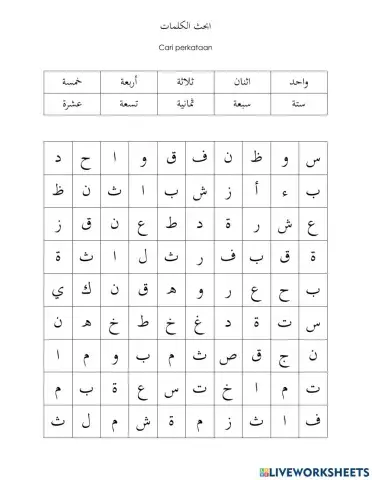 ابحث الكلمات
Cari perkataan
واحد اثنان ثلاثة أربعة خمسة
ستة سبعة ثمانية تسعة عشرة
س و ظ ن ف ق و ا ح د
ب ء أ ز ش ب ا ث ن ظ
ع ش ر ة د ط ع ن ق ز
ة ق ب ف ر ث ل ا ث ة
ب ح ع ر و ه ق ن ك ي
س ت ة د غ خ ط خ ه ن
ن ج ق ص ث م ب و م ا
ت م ا خ ت س ع ة ب م
ف ا ث ز م ة ش م ل ث
LIVEWORKSHEETS